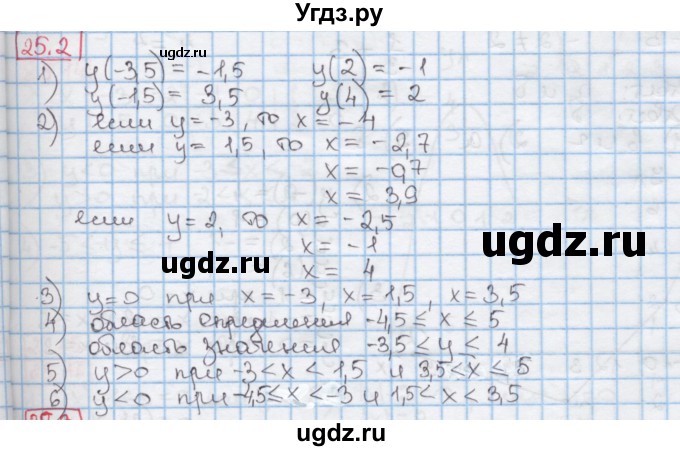 Угдз.ру
25.2
1) y(-3,5) = -1,5 y(2) = -1
y(-1,5) = 3,5 y(4) = 2
2) если y = -3, то x = -4
если y = 1,5, то x = -2,7
x = -0,7
x = 3,9
если y = 2, то x = -2,5
x = -1
x = 4
3) y=0 при x = -3, x = 1,5, x = 3,5
4) область определения -4,5 ≤ x ≤ 5
область значения -3,5 ≤ y ≤ 4
5) y>0 при -3 < x < 1,5 и 3,5 < x ≤ 5
6) y<0 при -4,5 ≤ x < -3 и 1,5 < x < 3,5
ugdz.ru
ugdz.ru
ugdz.ru
ugdz.ru
ugdz.ru